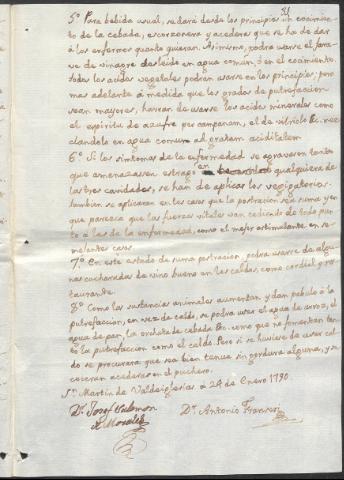 21
5º Para bebida usual, se dará desde los principios un cocimien-
to de la cebada, escorzonera y acederas que se ha de dar
á los enfermos quanto quieran. Asimismo, podra usarse el jara-
ve de vinagre desleido en agua comun, ó en el cocimiento.
todos los acidos vegetales podran usarse en los principios; pero
mas adelante á medida que los grados de putrefaccion
sean mayores, havran de usarse los acidos minerales como
el espiritu de azufre per campanam, el de vitriolo &c. mez-
clandolo en agua comun ad gratam aciditatem
6º Si los sintomas de la enfermedad se agravaren tanto
que amenazasen estrago en qualquiera de
las tres cavidades, se han de aplicar los vegigatorios.
tambien se aplicaran en los casos que la postracion sea suma y en
que paresca que las fuerzas vitales van cediendo de todo pun-
to á las de la enfermedad, como el mejor estimulante en se-
melantes casos
7º En este estado de suma postracion, podra usarse de algu-
nas cucharadas de vino bueno en los caldos, como cordial y res-
taurante.
8º Como las sustancias animales aumentan y dan pabulo á la
putrefaccion, en vez de caldo, se podra usar el agua de arroz, el
agua de pan, la orchata de cebada &c. como que no fomentan tan-
to la putrefaccion como el caldo. Pero si se huviere de usar cal-
do se procurara que sea bien tenue sin gordura alguna, y se
coceran acederas en el puchero.
Sn. Martin de Valdeiglesias á 24 de Enero 1790
Dr. Josef Salmon
Dn. Antonio Franseri
& Morales